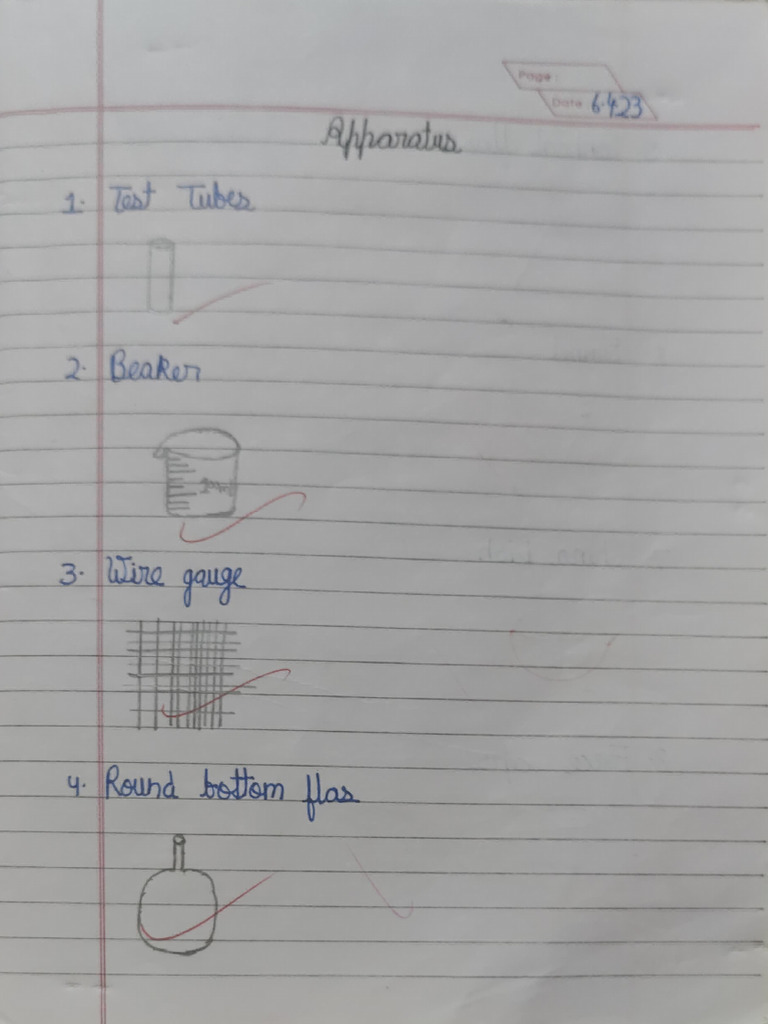 Page:
Date 6.4.23
Apparatus
1. Test Tubes
2. Beaker
3. Wire gauge
4. Round bottom flas